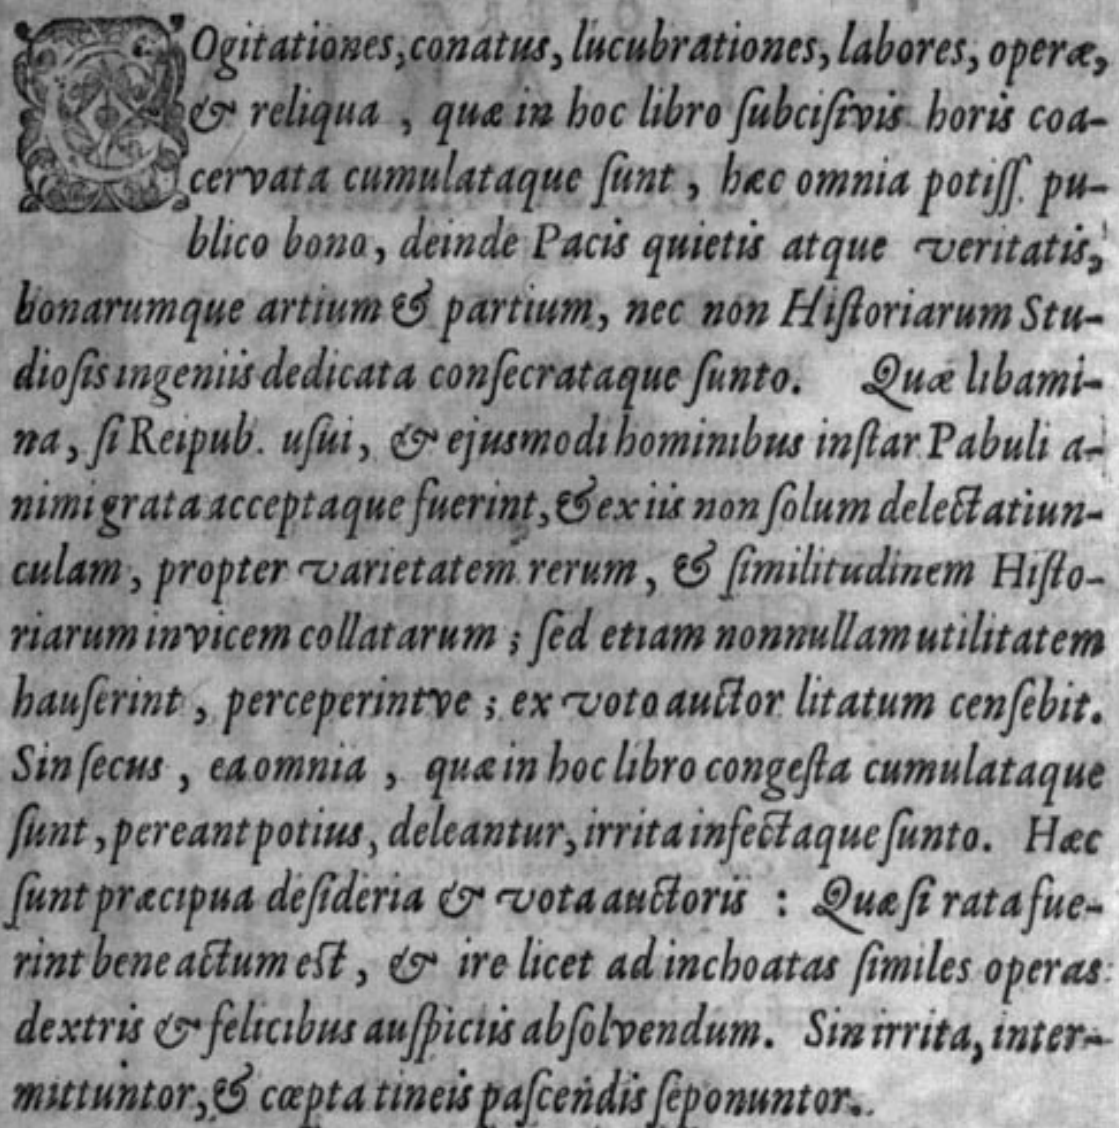 COgitationes, conatus, lucubrationes, labores, operæ,
& reliqua , quæ in hoc libro ſubciſivis horis coa-
cervata cumulataque ſunt , hæc omnia potiſſ. pu-
blico bono, deinde Pacis quietis atque veritatis,
bonarumque artium & partium, nec non Hiſtoriarum Stu-
dioſis ingeniis dedicata conſecrataque ſunto. Quæ libami-
na, ſi Reipub. uſui, & ejusmodi hominibus inſtar Pabuli a-
nimi grata acceptaque fuerint, & ex iis non ſolum delectatiun-
culam, propter varietatem rerum, & ſimilitudinem Hiſto-
riarum invicem collatarum ; ſed etiam nonnullam utilitatem
hauſerint , perceperintve ; ex voto auctor litatum cenſebit.
Sin ſecus , ea omnia , quæ in hoc libro congeſta cumulataque
ſunt, pereant potius, deleantur, irrita infectaque ſunto. Hæc
ſunt præcipua deſideria & vota auctoris : Quæ ſi rata fue-
rint bene actum eſt, & ire licet ad inchoatas ſimiles operas
dextris & felicibus auſpiciis abſolvendum. Sin irrita, inter-
mittuntor, & cœpta tineis paſcendis ſeponuntor.